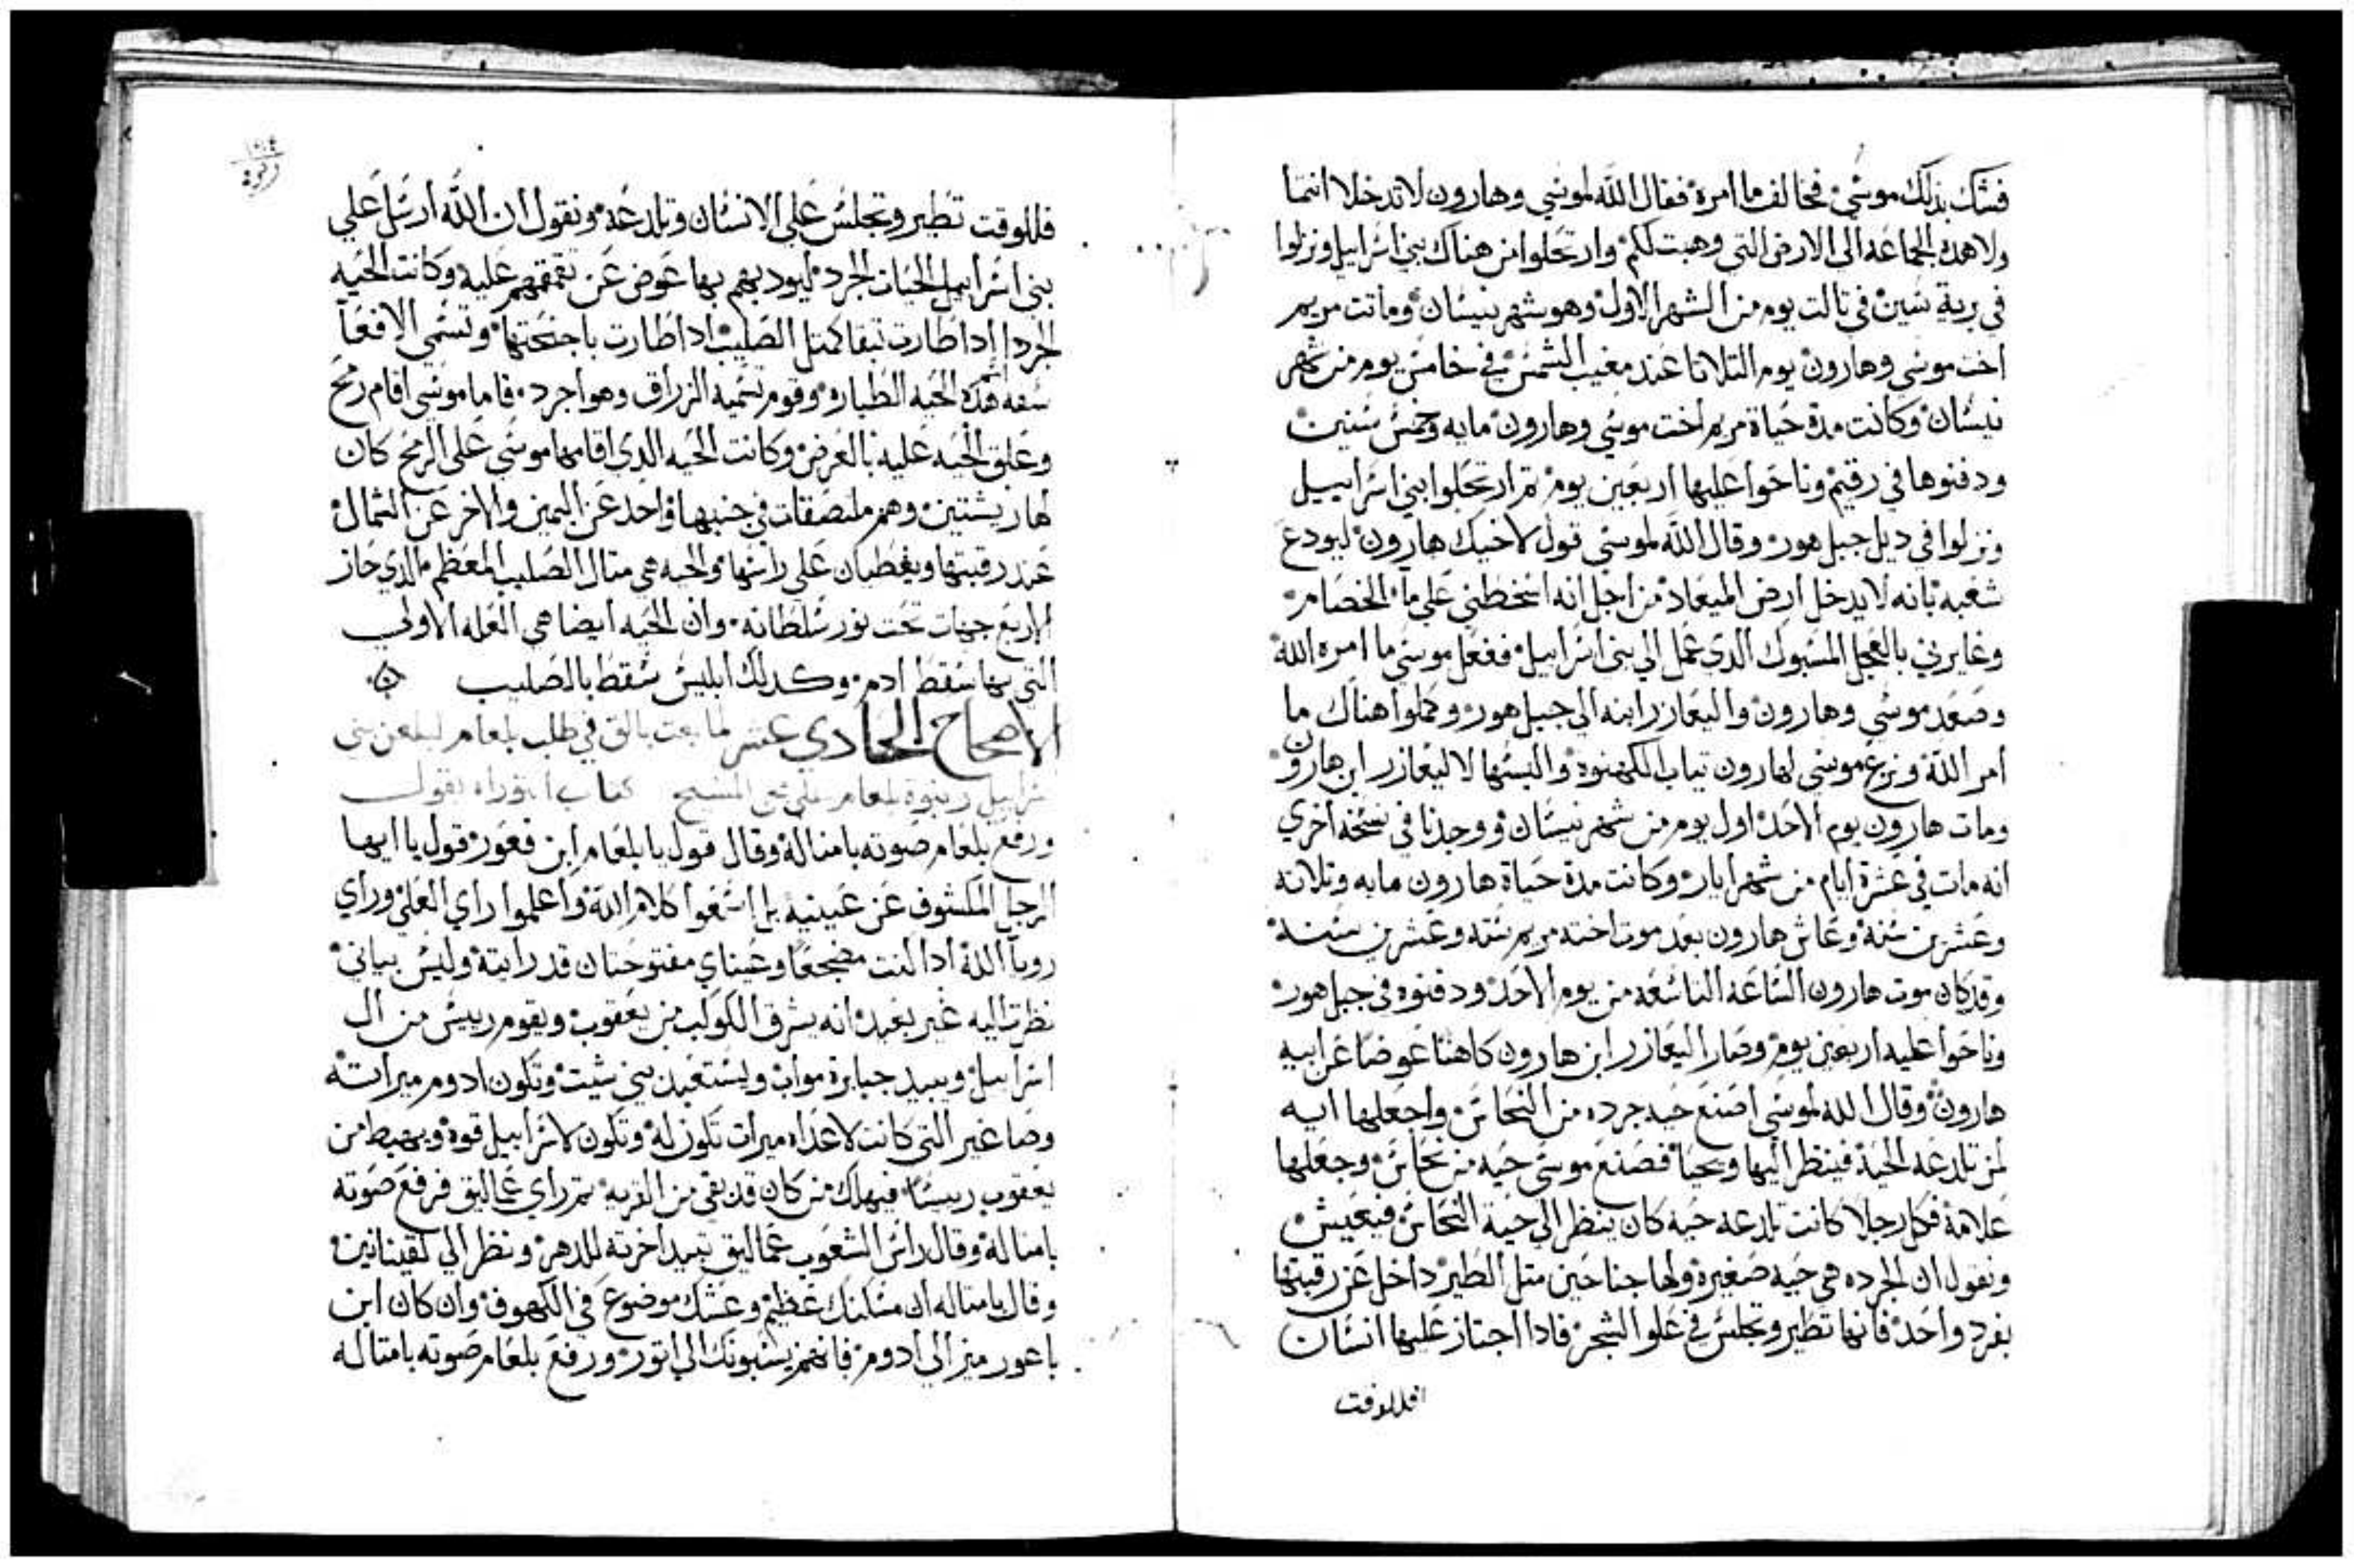 فشك بذلك موسي فخالف ما امره فقال الله لموسي وهارون لا تدخلا انتما
ولا هده الجماعه الي الارض التي وهبت لكم وارتحلوا من هناك بني اسراييل ونزلوا
في برية سين في تالت يوم من الشهر الاول وهو شهر نيسان وماتت مريم
اخت موسي وهارون يوم التلاتا عند مغيب الشمس في خامس يوم من شهر
نيسان وكانت مدة حياة مريم اخت موسي وهارون مايه وخمس سنين
ودفنوها في رقيم وناحوا عليها اربعين يوم تم ارتحلوا بني اسراييل
ونزلوا في ديل جبل هور وقال الله لموسي قول لاخيك هارون ليودع
شعبه بانه لا يدخل ارض الميعاد من اجل انه اسخطني علي ما الخصام
وغايرني بالعجل المسبوك الدي عمل الي بني اسراييل ففعل موسي ما امره الله
وصعد موسي وهارون واليعازر ابنه الي جبل هور وكملوا هناك ما
امر الله ونزع موسي لهارون تياب الكهنوه والبسها لاليعازر ابن هارون
ومات هارون يوم الاحد اول يوم من شهر نيسان ووجدنا في نسخه اخري
انه مات في عشرة ايام من شهر ايار وكانت مدة حياة هارون مايه وتلاته
وعشرين سنه وعاش هارون بعد موت اخته مريم سته وعشرين سنه
وقد كان موت هارون الساعه التاسعه من يوم الاحد ودفنوه في جبل هور
وناحوا عليه اربعين يوم وصار اليعازر ابن هارون كاهنا عوضا عن ابيه
هارون وقال الله لموسي اصنع حيه جرده من النحاس واجعلها ايه
لمن تلدعه الحية فينظر اليها ويحيا فصنع موسي حيه من نحاس وجعلها
علامة فكل رجلا كانت تلدعه حيه كان ينظر الي حية النحاس فيعيش
ونقول ان الجرده هي حيه صغيرة ولها جناحين متل الطير داخل عن رقبتها
بفرد واحد فانها تطير وتجلس في علو الشجر فادا اجتاز عليها انسان
فللوقت
فللوقت تطير وتجلس علي الانسان وتلدعه ونقول ان الله ارسل علي
بني اسراييل الحيات الجرد ليودبهم بها عوض عن تقمقمهم عليه وكانت الحيه
الجردا ادا طارت تبقا كمتل الصليب ادا طارت باجنحتها وتسمي الافعا
هده الحيه الطياره وقوم تسميه الزراق وهو اجرد فاما موسي اقام رمح
وعلق الحيه عليه بالعرض وكانت الحيه الدي اقامها موسي علي الرمح كان
لها ريشتين وهم ملتصقات في جنبها واحد عن اليمين والاخر عن الشمال
عند رقبتها ويغطيان علي راسها والحيه هي متال الصليب المعظم الدي حاز
الاربع جهات تحت نور سلطانه وان الحيه ايضا هي العله الاولي
التي بها سقط ادم وكدلك ابليس سقط بالصليب
الاصحاح الحادي عشر لما بعت بالق في طلب بلعام ليلعن بني
اسراييل ونبوة بلعام علي مجي المسيح كتاب التوراه يقول
ورفع بلعام صوته بامثاله وقال قول يا بلعام ابن فعور قول يا ايها
الرجل المكشوف عن عينيه بل اسمعوا كلام الله واعلموا راي العلي وراي
رويا الله ادا كنت مضجعا وعيناي مفتوحتان قد رايته وليس بياني
نظرت اليه غير بعيد انه يشرق الكوكب من يعقوب ويقوم رييس من ال
اسراييل ويبيد جبابرة مواب ويستعبد بني شيت وتكون ادوم ميراته
وصاغير التي كانت لاعداه ميرات تكون له وتكون لاسراييل قوة ويهبط من
يعقوب رييسا فيهلك من كان قد بقي من القريه تم راي عماليق فرفع صوته
بامتاله وقال راس الشعوب عماليق تبيد اخرته للدهر ونظر الي القينانين
وقال بامتاله ان مسكنك عظيم وعشك موضوع في الكهوف وان كان ابن
باعور ميز الي ادوم فانهم يسبونك الي اتور ورفع بلعام صوته بامتاله